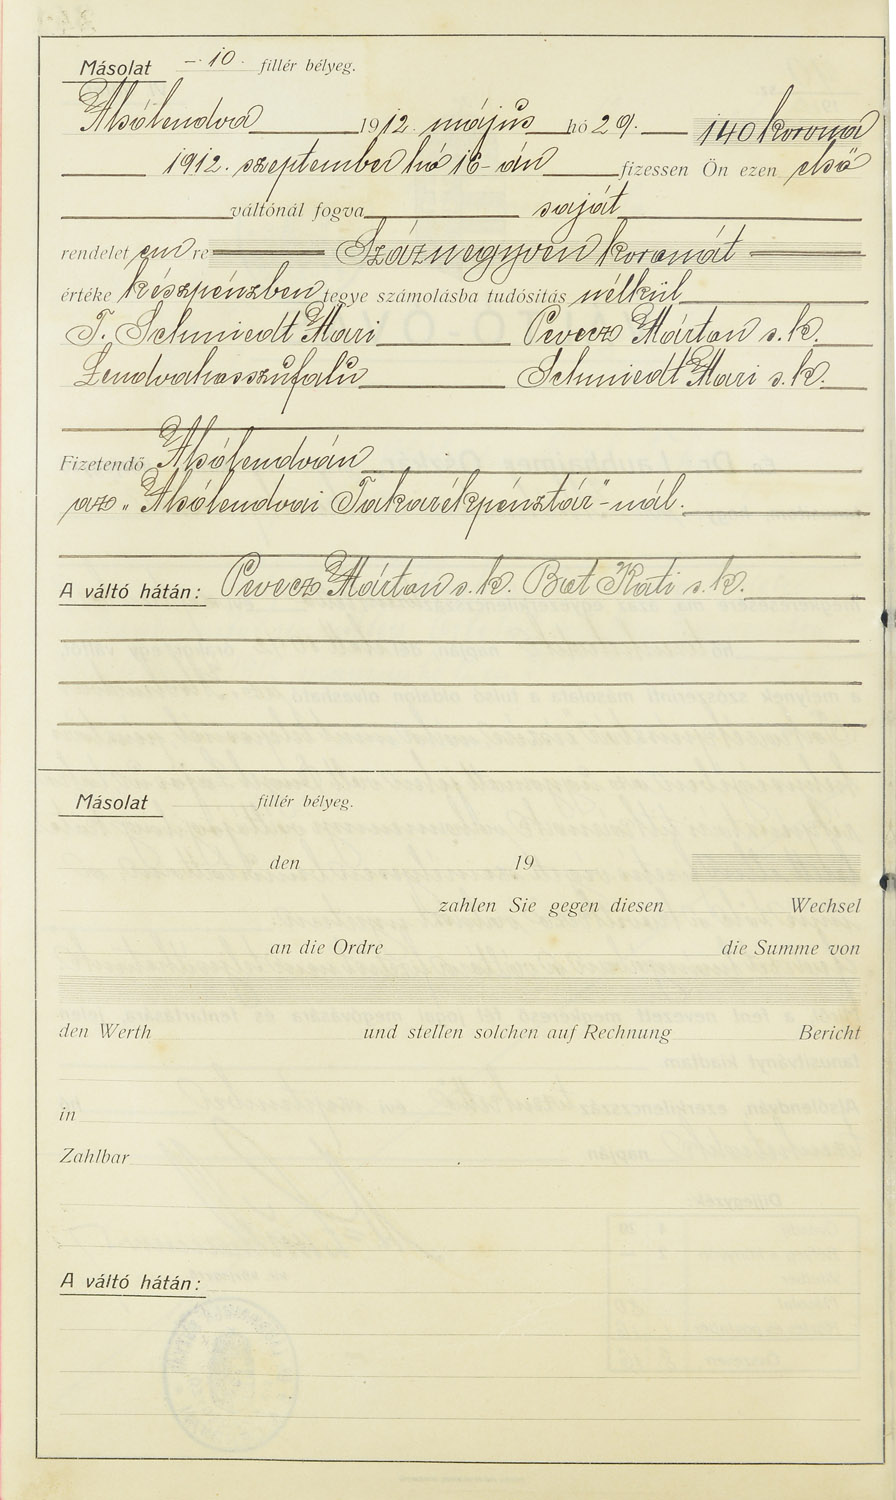 Másolat –·10· fillér bélyeg.
Alsólendva 1912. május hó 29. 140 korona
1912. szeptember hó 16-án fizessen Ön ezen első
váltónál fogva saját
rendelet em re Száznegyven koronát
értéke készpénzben tegye számolásba tudósítás nélkül
T. Schmiedt Mari Pevecz Márton s. k.
Lendvahosszúfalu Schmiedt Mari s. k.
Fizetendő Alsólendván
az „Alsólendvai Takarékpénztár"-nál.
A váltó hátán: Pevecz Márton s. k. Kati s. k.
Másolat fillér bélyeg.
den 19
zahlen Sie gegen diesen Wechsel
an die Ordre die Summe von
den Werth und stellen solchen auf Rechnung Bericht
in
Zahlbar
A váltó hátán: